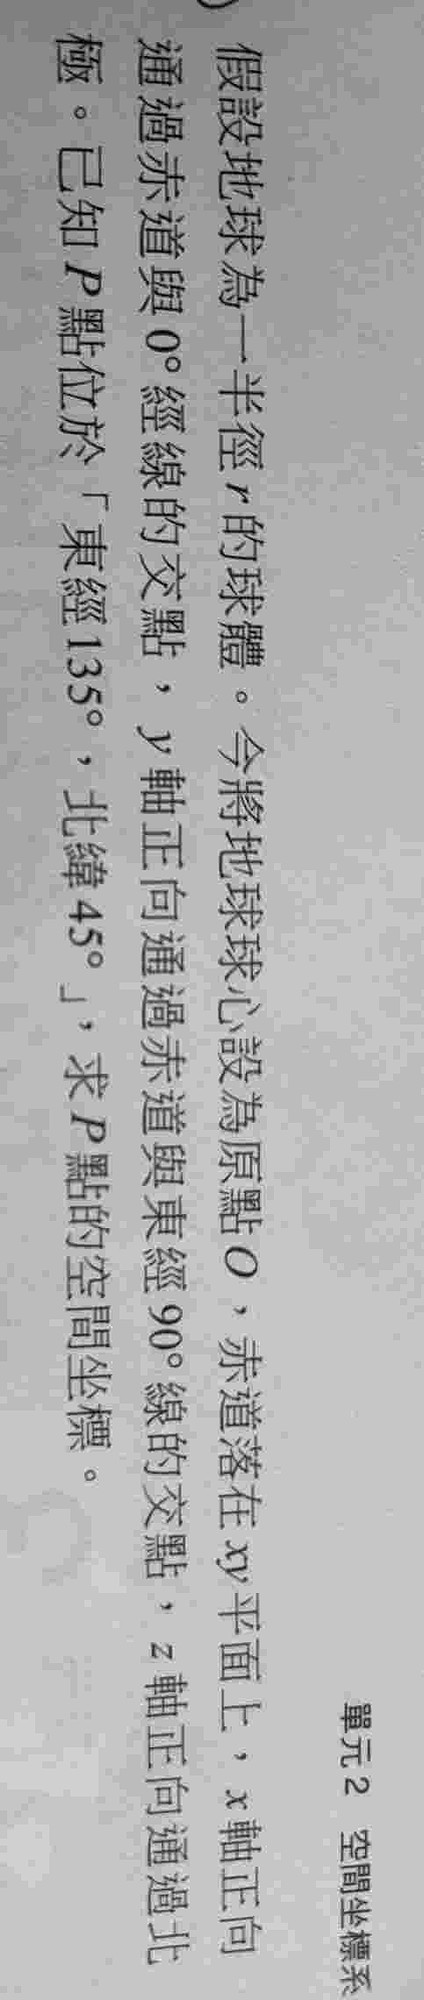 單元2 空間坐標系
假設地球為一半徑 r 的球體。今將地球球心設為原點 O，赤道落在 xy 平面上，x 軸正向
通過赤道與 0° 經線的交點，y 軸正向通過赤道與東經 90° 線的交點，z 軸正向通過北
極。已知 P 點位於「東經 135°，北緯 45°」，求 P 點的空間坐標。